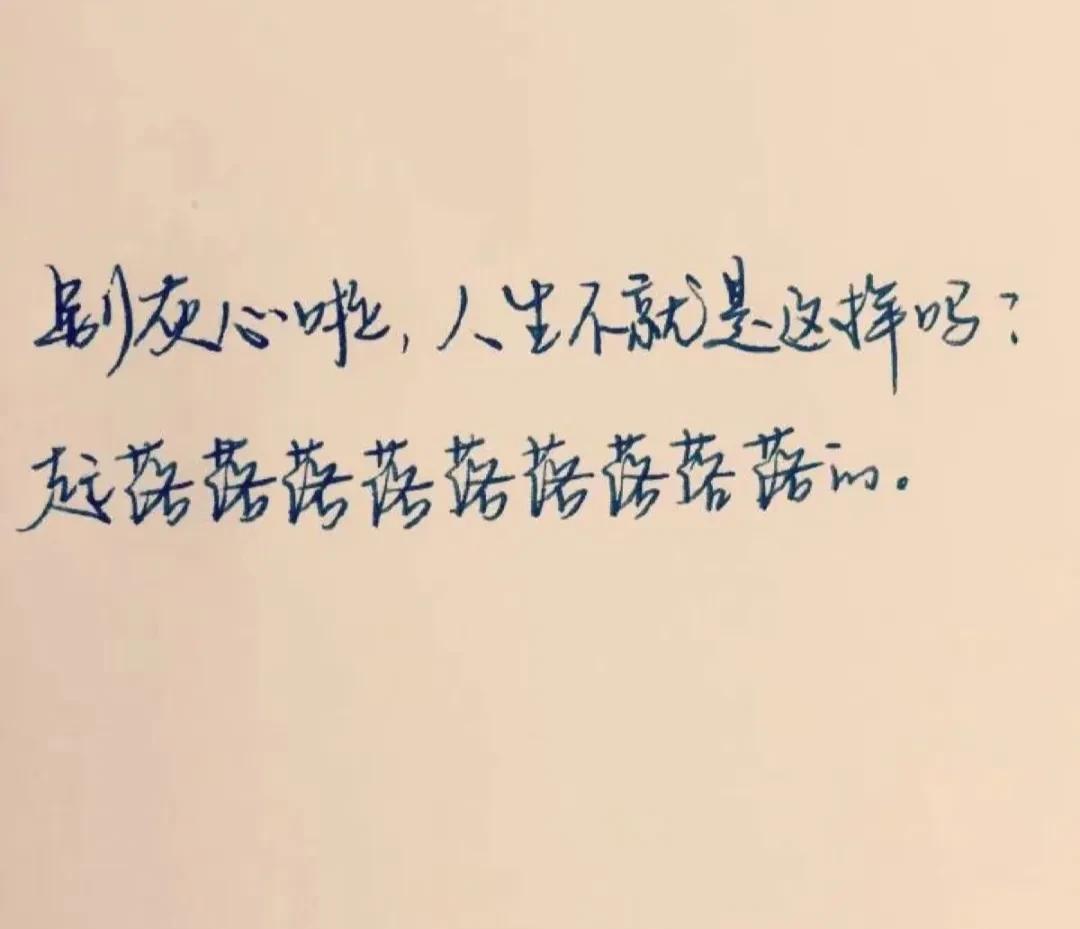 别灰心啦，人生不就是这样吗？
起落落落落落落落落落的。